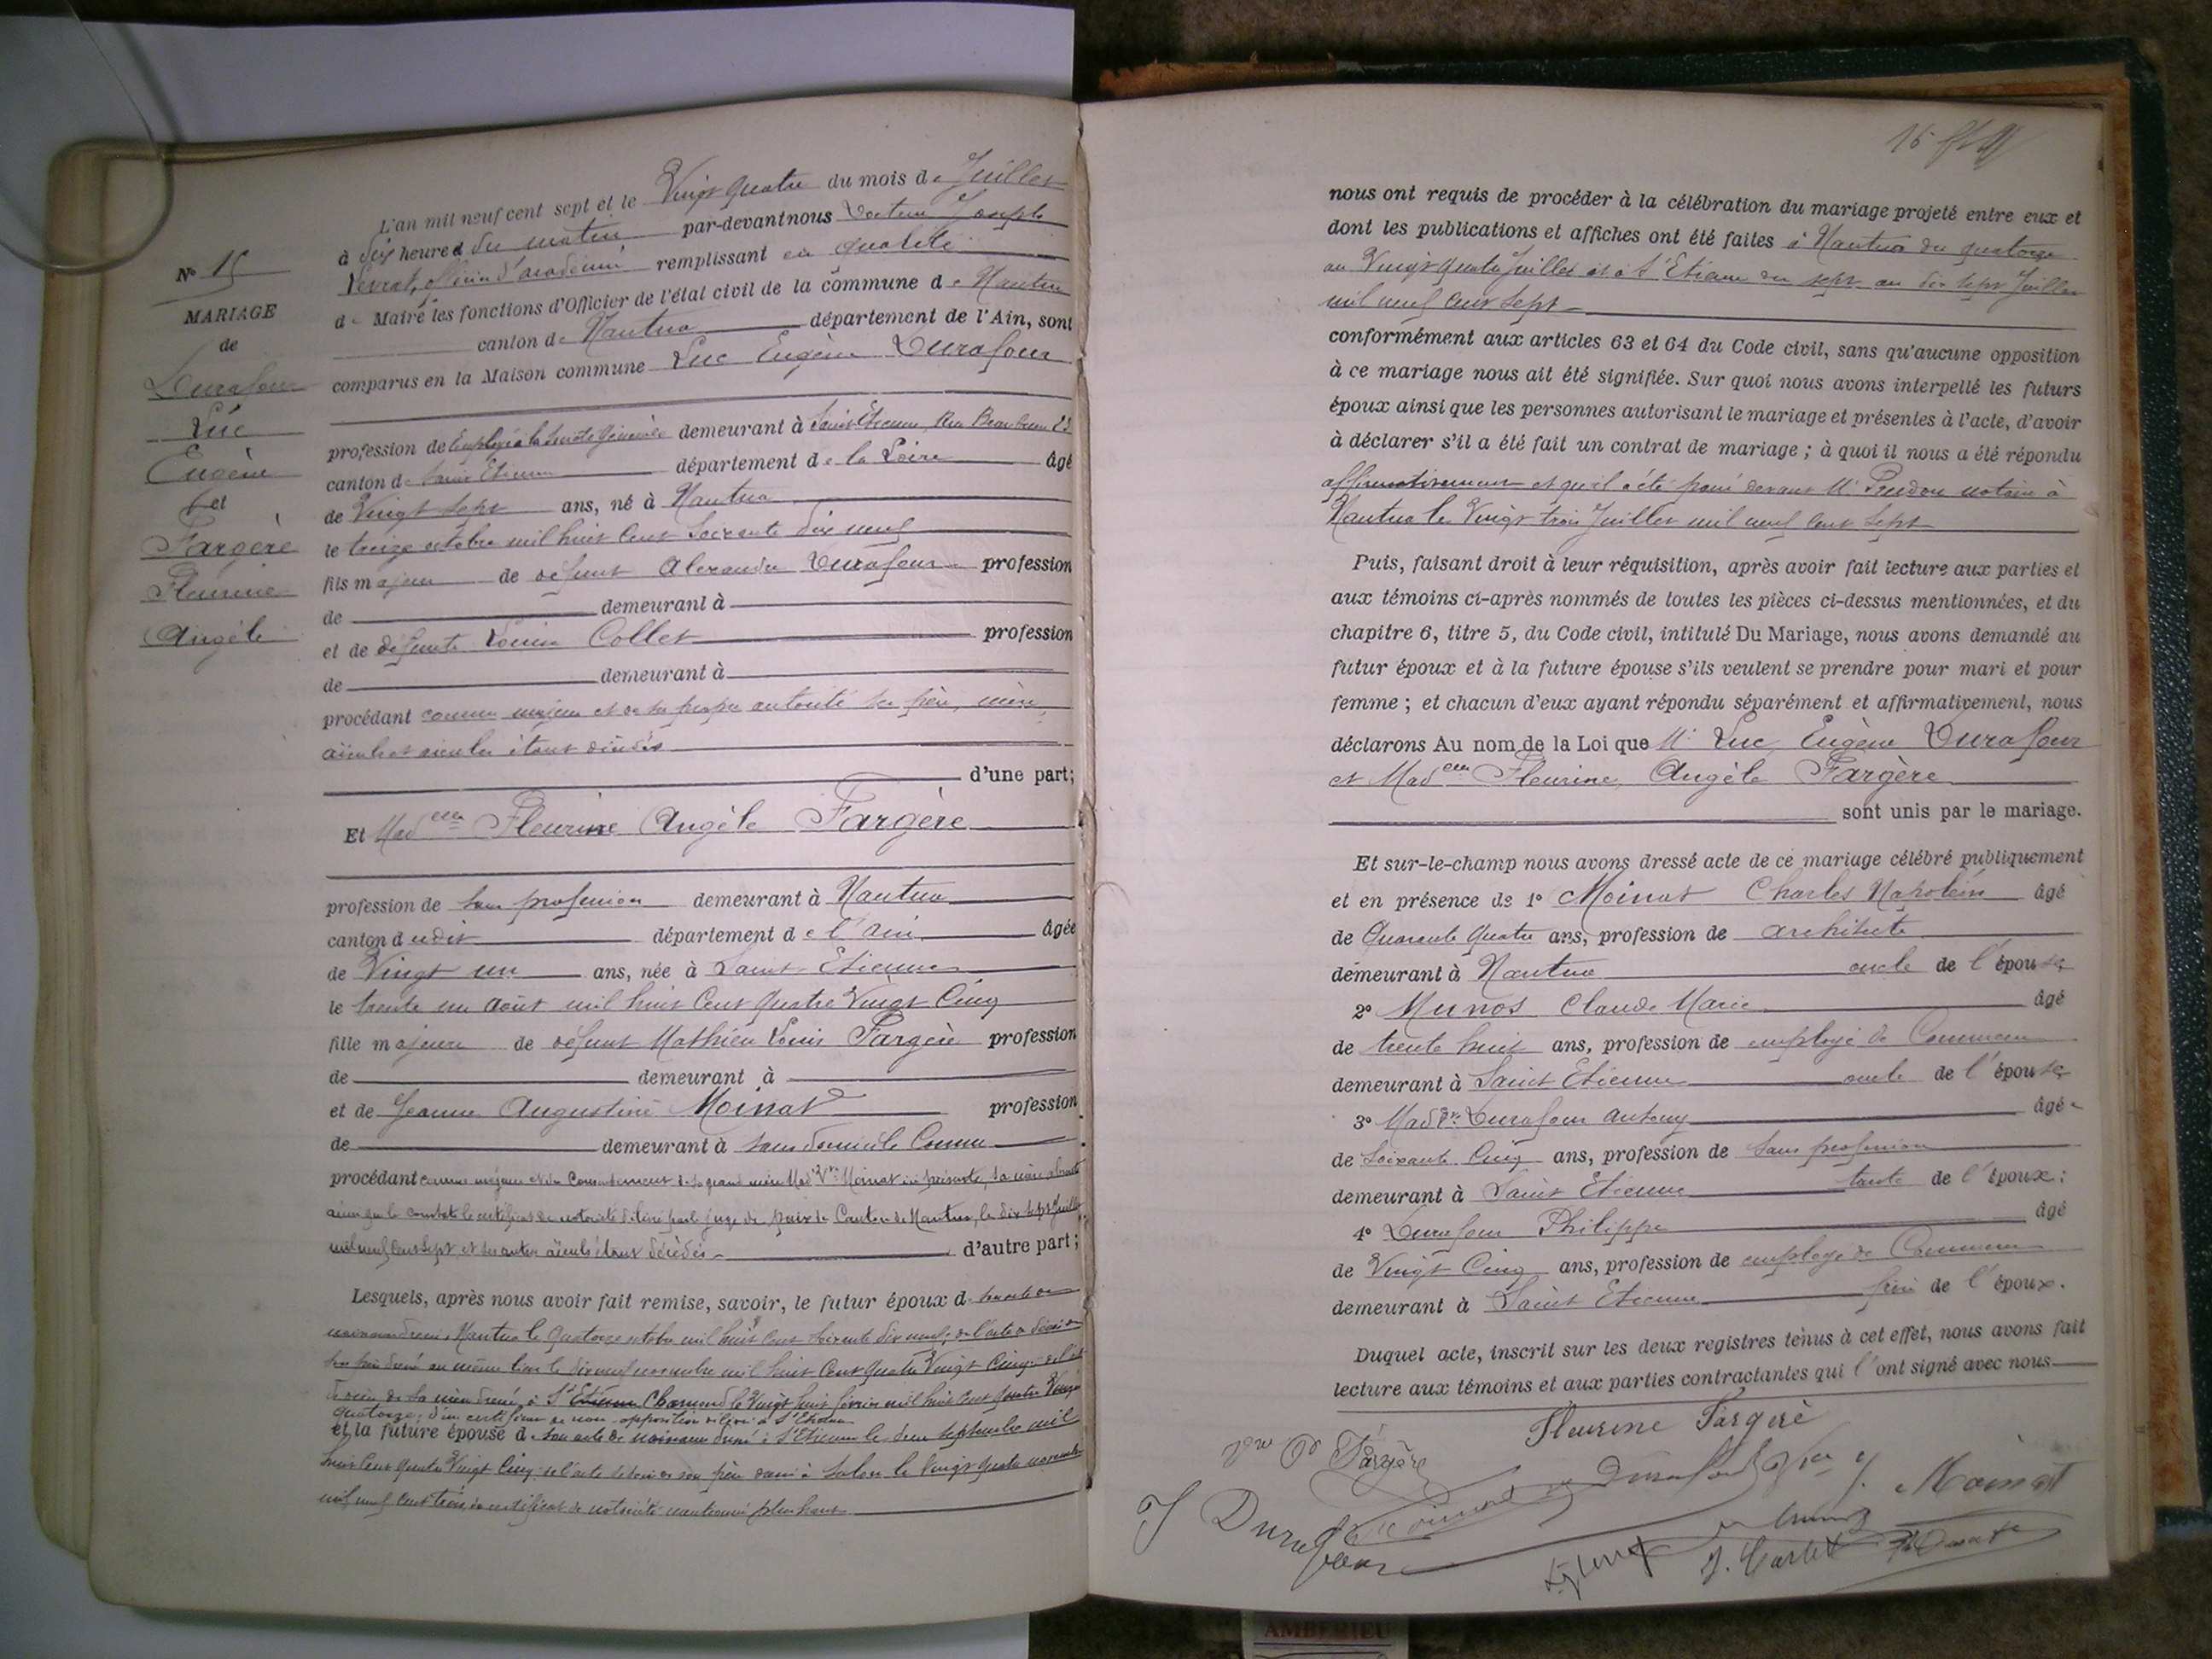 N° 15
MARIAGE
de
Durafour
Luc
Eugène
et
Fargère
Fleurine
Angèle
L'an mil neuf cent sept et le Vingt quatre du mois de Juillet
à dix heures du matin par-devant nous Docteur Joseph
Levrat, officier d'académie remplissant en qualité
de Maire les fonctions d'Officier de l'état civil de la commune de Nantua
canton de Nantua département de l'Ain, sont
comparus en la Maison commune Luc Eugène Durafour
profession de Employé à la Société Générale demeurant à Saint Etienne, Rue Beaubrun 22
canton de Saint Etienne département de la Loire âgé
de Vingt sept ans, né à Nantua
le treize octobre mil huit cent soixante dix neuf
fils majeur de défunt Alexandre Durafour profession
de demeurant à
et de défunte Louise Collet profession
de demeurant à
procédant comme majeur et de sa propre autorité ses père, mère,
aïeuls et aïeules étant décédés
d'une part;
Et Mad elle Fleurine Angèle Fargère
profession de sans profession demeurant à Nantua
canton dudit département de l'Ain âgée
de Vingt un ans, née à Saint-Etienne
le trente un août mil huit cent quatre Vingt Cinq
fille majeure de défunt Mathieu Louis Fargère profession
de demeurant à
et de Jeanne Augustine Moinat profession
de demeurant à sans domicile connu
procédant comme majeure et du consentement de sa grand mère Mad Vve Moinat ici présente, sa mère absente
ainsi que le constate le certificat de notoriété délivré par le juge de paix du Canton de Nantua, le dix sept Juillet
mil neuf cent sept et ses autres aïeuls étant décédés d'autre part;
Lesquels, après nous avoir fait remise, savoir, le futur époux de son acte de
naissance dressé à Nantua le quatorze octobre mil huit cent soixante dix neuf; de l'acte de décès de
son père dressé au même lieu le dix neuf novembre mil huit cent quatre Vingt Cinq; de l'acte
de décès de sa mère dressé à St Etienne Chamond le Vingt huit février mil huit cent quatre Vingt
quatorze; d'un certificat de non-opposition délivré à St Etienne
et la future épouse de son acte de naissance dressé à St Etienne le deux septembre mil
huit cent quatre Vingt Cinq; de l'acte de décès de son père dressé à Salon le Vingt quatre novembre
mil neuf cent trois, du certificat de notoriété mentionné plus haut
nous ont requis de procéder à la célébration du mariage projeté entre eux et
dont les publications et affiches ont été faites à Nantua du quatorze
au Vingt quatre Juillet et à St Etienne du sept au dix sept Juillet
mil neuf cent sept
conformément aux articles 63 et 64 du Code civil, sans qu'aucune opposition
à ce mariage nous ait été signifiée. Sur quoi nous avons interpellé les futurs
époux ainsi que les personnes autorisant le mariage et présentes à l'acte, d'avoir
à déclarer s'il a été fait un contrat de mariage; à quoi il nous a été répondu
affirmativement et qu'il a été passé devant Me Prudon notaire à
Nantua le Vingt trois Juillet mil neuf cent sept
Puis, faisant droit à leur réquisition, après avoir fait lecture aux parties et
aux témoins ci-après nommés de toutes les pièces ci-dessus mentionnées, et du
chapitre 6, titre 5, du Code civil, intitulé Du Mariage, nous avons demandé au
futur époux et à la future épouse s'ils veulent se prendre pour mari et pour
femme; et chacun d'eux ayant répondu séparément et affirmativement, nous
déclarons Au nom de la Loi que Mr Luc, Eugène Durafour
et Mad elle Fleurine, Angèle Fargère
sont unis par le mariage.
Et sur-le-champ nous avons dressé acte de ce mariage célébré publiquement
et en présence de 1° Moinat Charles Napoléon âgé
de Quarante Quatre ans, profession de architecte
demeurant à Nantua oncle de l'épouse
2° Munos Claude Marie âgé
de trente huit ans, profession de employé de Commerce
demeurant à Saint Etienne oncle de l'épouse
3° Mad Vve Durafour Antony âgée
de Soixante Cinq ans, profession de Sans profession
demeurant à Saint Etienne tante de l'époux;
4° Durafour Philippe âgé
de Vingt Cinq ans, profession de employé de Commerce
demeurant à Saint Etienne frère de l'époux.
Duquel acte, inscrit sur les deux registres tenus à cet effet, nous avons fait
lecture aux témoins et aux parties contractantes qui l'ont signé avec nous
Fleurine Fargère
Fargère
Moinat
Durafour
AMBERIEU